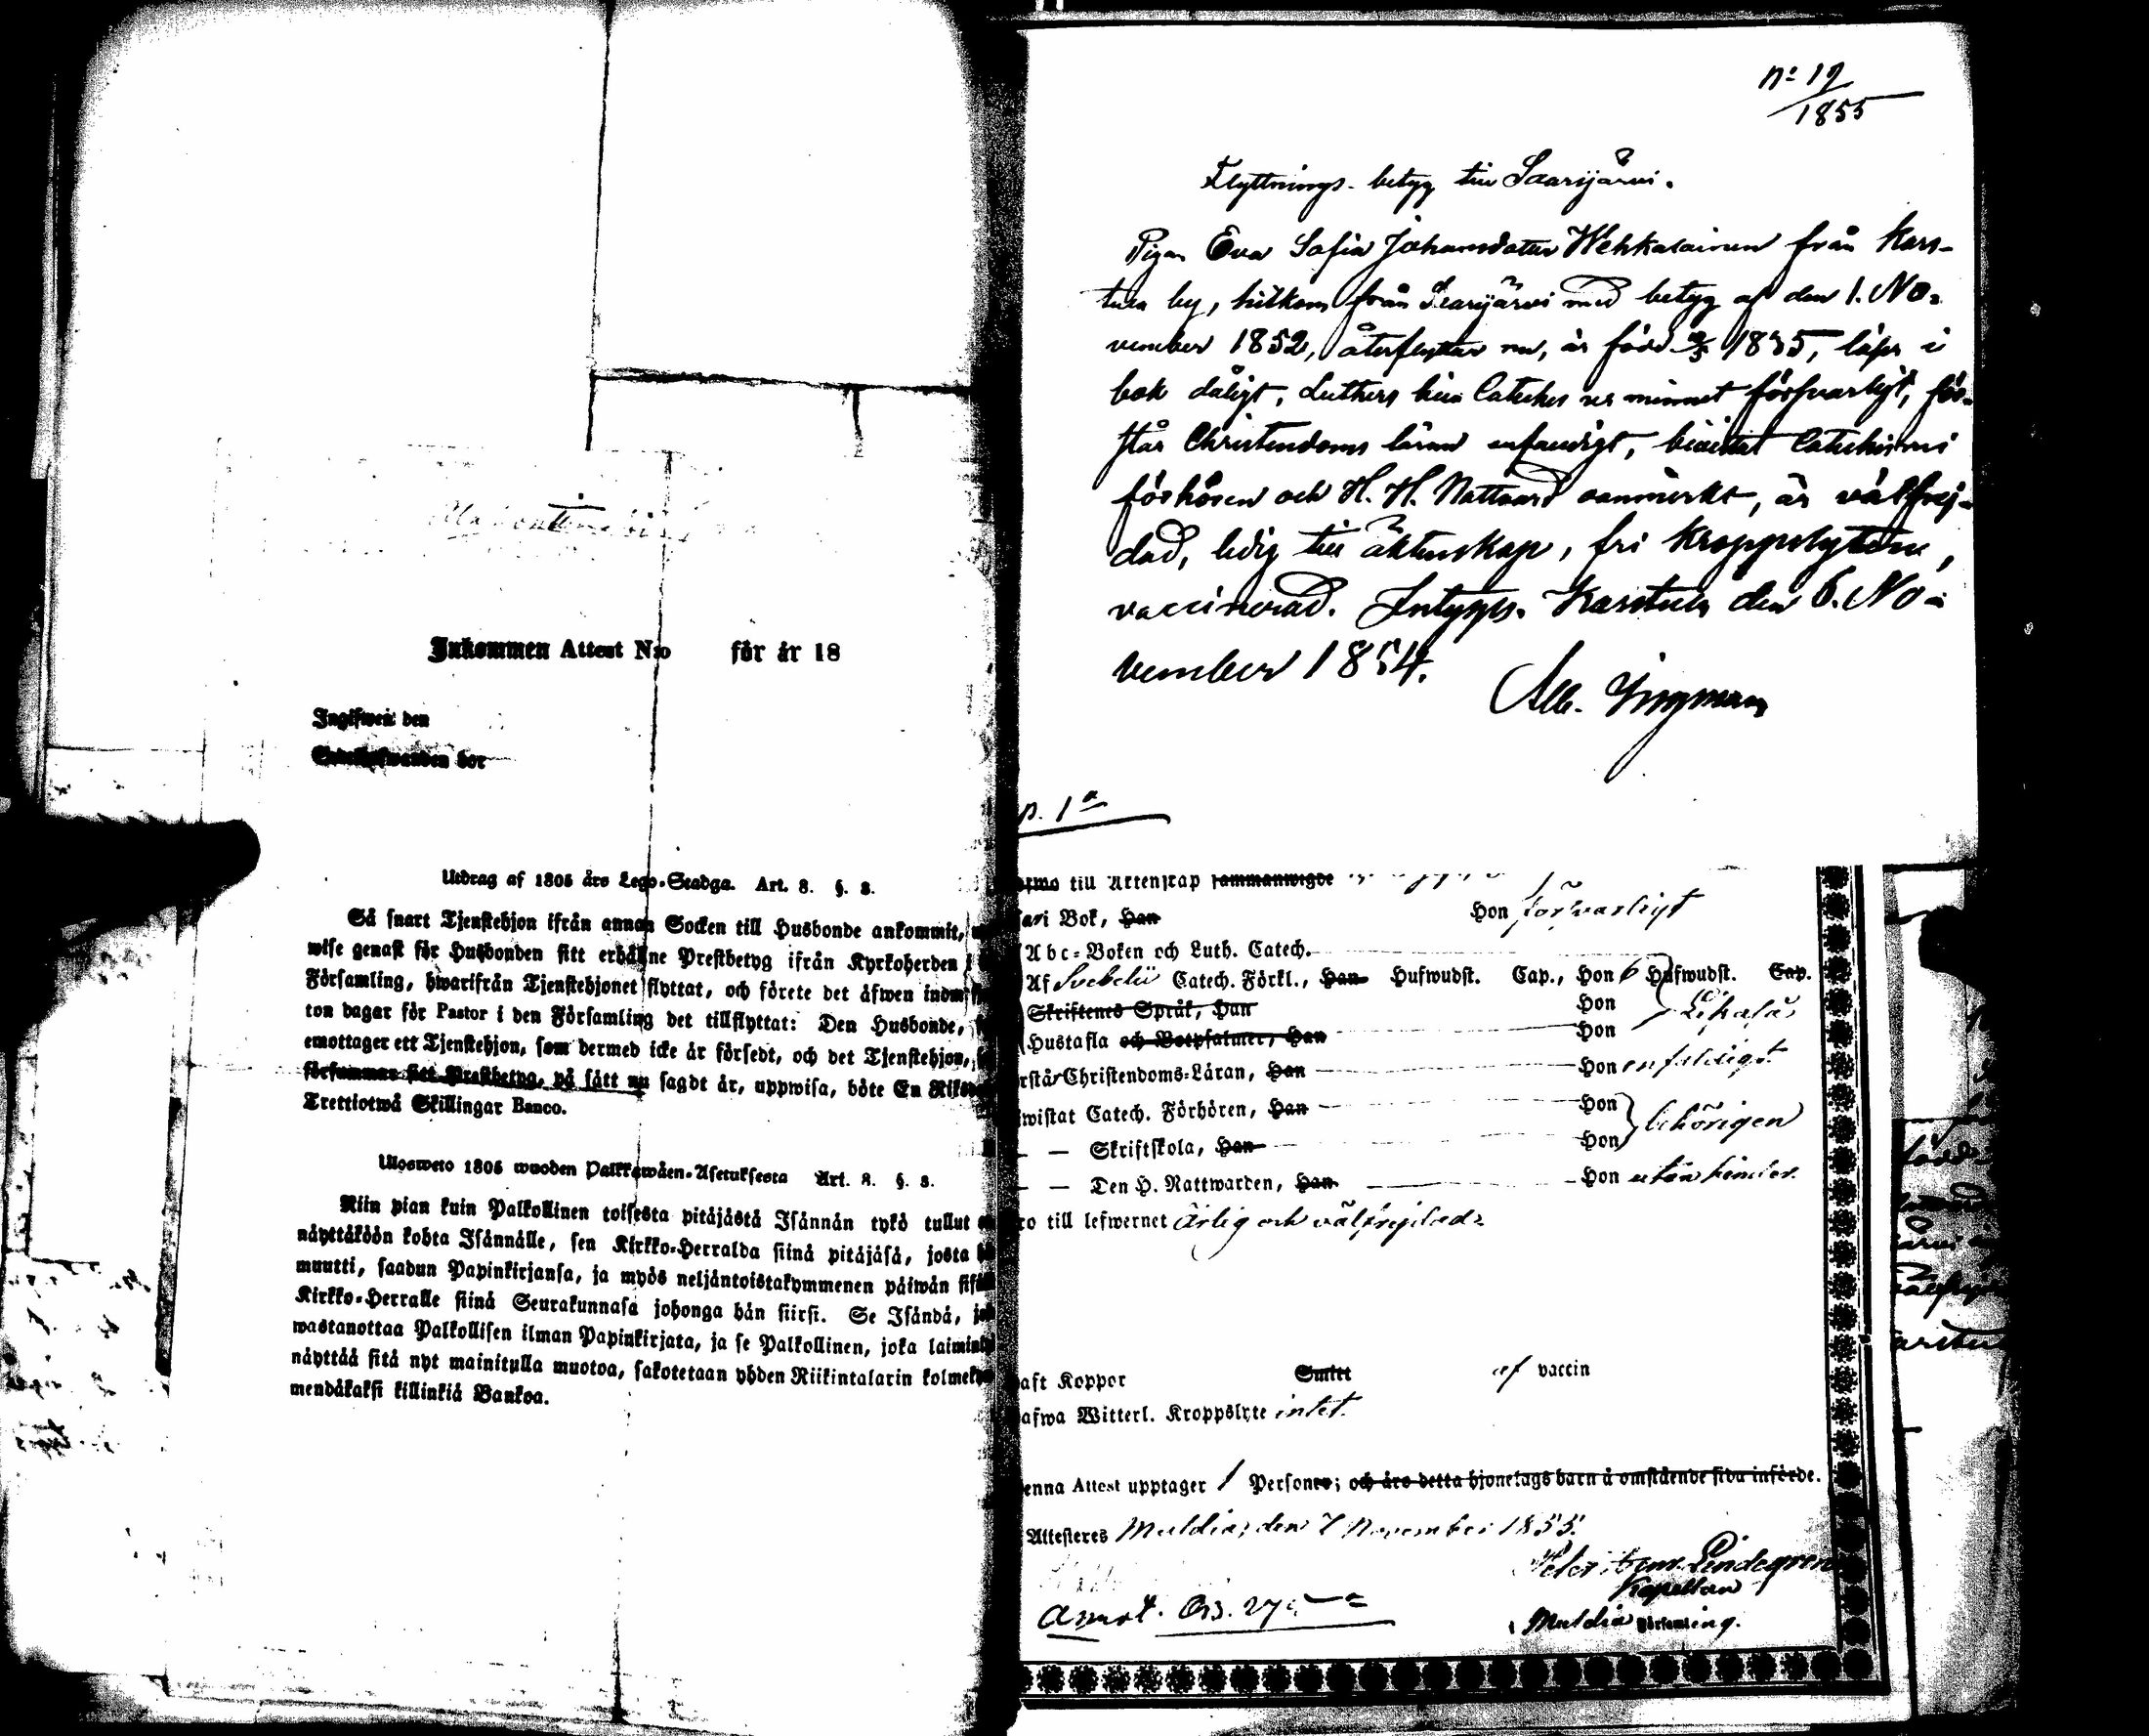 Inkommen Attest N:o för år 18
Ingifwen den
bor
Utdrag af 1805 års Lego-Stadga. Art. 8. §. 8.
Så snart Tjenstehjon ifrån annan Socken till Husbonde ankommit,
wise genast för Husbonden sitt erhållne Prestbetyg ifrån Kyrkoherden i
Församling, hwarifrån Tjenstehjonet flyttat, och förete det äfwen inom
ton dagar för Pastor i den Församling det tillflyttat: Den Husbonde,
emottager ett Tjenstehjon, som dermed icke är försedt, och det Tjenstehjon,
försummar sitt Prestbetyg, på sätt nu sagdt är, uppwisa, böte En Riksd
Trettiotwå Skillingar Banco.
Ulosweto 1805 wuoden Palkkawäen-Asetuksesta Art. 8. §. 8.
Niin pian kuin Palkollinen toisesta pitäjästä Isännän tykö tullut
näyttäköön kohta Isännälle, sen Kirkko-Herralda siinä pitäjäsä, josta
muutti, saadun Papinkirjansa, ja myös neljäntoistakymmenen päiwän sis
Kirkko-Herralle siinä Seurakunnasa johonga hän siirsi. Se Isändä,
wastanottaa Palkollisen ilman Papinkirjata, ja se Palkollinen, joka laimin
näyttää sitä nyt mainitulla muotoa, sakotetaan yhden Riikintalarin kolmeky
mendäkaksi killinkiä Bankoa.
n:o 19
1855
Flyttnings-betyg till Saarijärvi.
Pigan Eva Sofia Johansdotter Wehkalainen från Kars-
tula by, hitkom från Saarijärvi med betyg af den 1. No-
vember 1852, återflyttar nu, är född 1835, läser i
bok dåligt, Luthers lilla Cateches ur minnet försvarligt, för-
står Christendoms läran enfaldigt, bivistat Catechismi
förhören och H. H. Nattvard oanmärkt, är välfrej-
dad, ledig till äktenskap, fri kroppslyten,
vaccinerad. Intygas. Karstula den 6. No-
vember 1854.
Alb. Ingman
p. 1a
till Äktenskap sammanwigde
Bok, Han Hon förswarligt
Abc-Boken och Luth. Catech.
Af Svebelii Catech. Förkl., Han Hufwudst. Cap., Hon 6 Hufwudst. Cap.
Skriftenes Språk, Han Hon likaså
Hustafla och Botpsalmer, Han Hon
rstår Christendoms-Läran, Han Hon enfaldigt
wistat Catech. Förhören, Han Hon behörigen
— — Skriftskola, Han Hon
— — Den H. Nattwarden, Han Hon utan hinder.
ro till lefwernet ärlig och välfrejdad
aft Koppor Smitt af vaccin
afwa Witterl. Kroppslyte intet.
enna Attest upptager 1 Personer; och äro detta hjonelags barn å omstående sida införde.
Attesteres Muldia, den 7 November 1855.
Lindegren
Kapellan
i Muldia Församling.